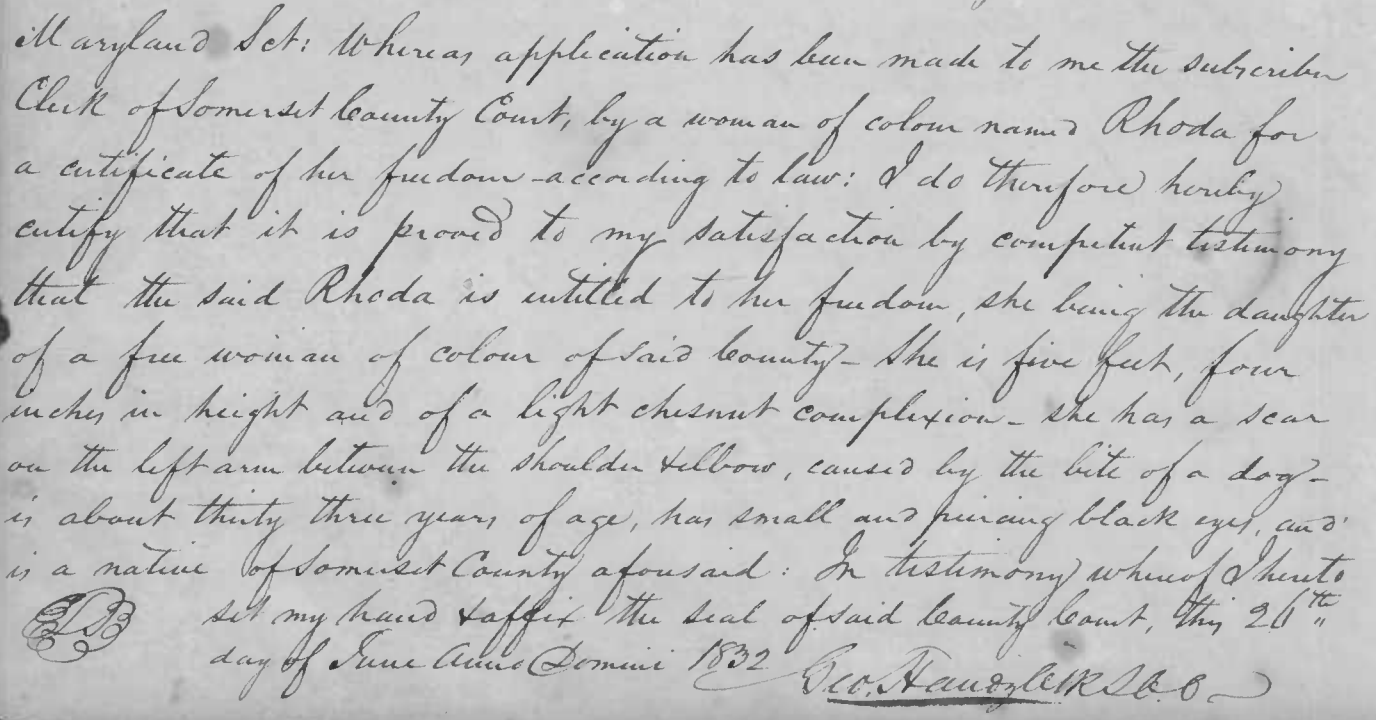 Maryland Sct: Whereas application has been made to me the subscriber
Clerk of Somerset County Court, by a woman of colour named Rhoda for
a certificate of her freedom according to law: I do therefore hereby
certify that it is proved to my satisfaction by competent testimony
that the said Rhoda is entitled to her freedom, she being the daughter
of a free woman of colour of said County - She is five feet, four
inches in height and of a light chesnut complexion - she has a scar
on the left arm between the shoulder & elbow, caused by the bite of a dog -
is about thirty three years of age, has small and piercing black eyes, and
is a native of Somerset County aforesaid: In testimony whereof I hereto
set my hand & affix the seal of said County Court, this 26th
day of June Anno Domini 1832
Geo. Handy Clk S. C. C.